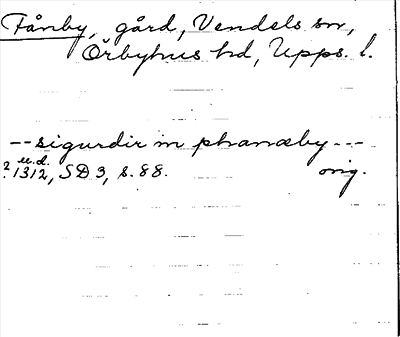 Fånby, gård, Vendels sn,
Örbyhus hd, Upps. l.
--sigurdir in phanæby---
u.d.
? 1312, SD 3, s. 88. orig.